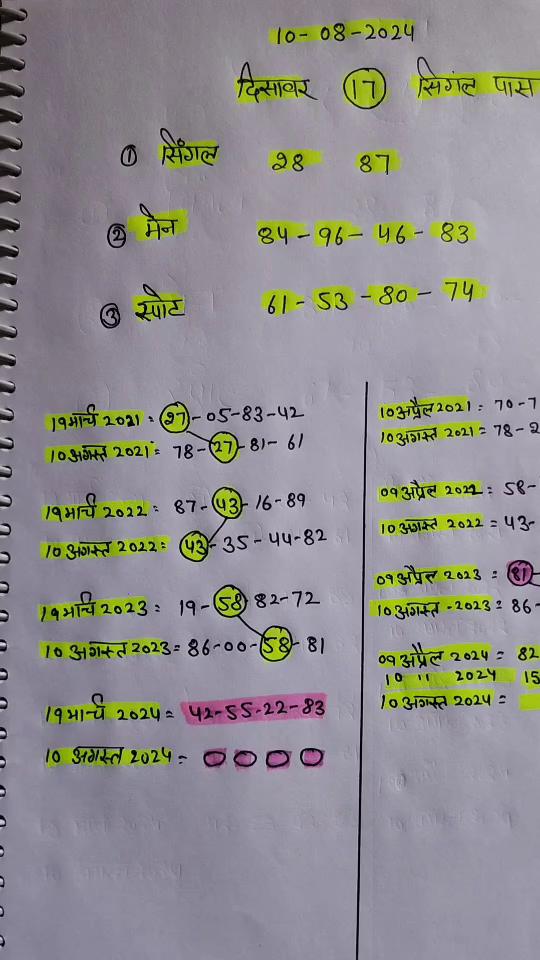 10-08-2024
दिसावर 17 सिंगल पास
① सिंगल 28 87
② मेन 84-96-46-83
③ स्पोट 61-53-80-74
19 मार्च 2021 = 27-05-83-42
10 अगस्त 2021 = 78-27-81-61
19 मार्च 2022 = 87-43-16-89
10 अगस्त 2022 = 43-35-44-82
19 मार्च 2023 = 19-58-82-72
10 अगस्त 2023 = 86-00-58-81
19 मार्च 2024 = 42-55-22-83
10 अगस्त 2024 =
10 अप्रैल 2021 = 70-7
10 अगस्त 2021 = 78-2
09 अप्रैल 2022 = 58-
10 अगस्त 2022 = 43-
09 अप्रैल 2023 = 81-
10 अगस्त -2023 = 86-
09 अप्रैल 2024 = 82
10 " 2024 15
10 अगस्त 2024 =